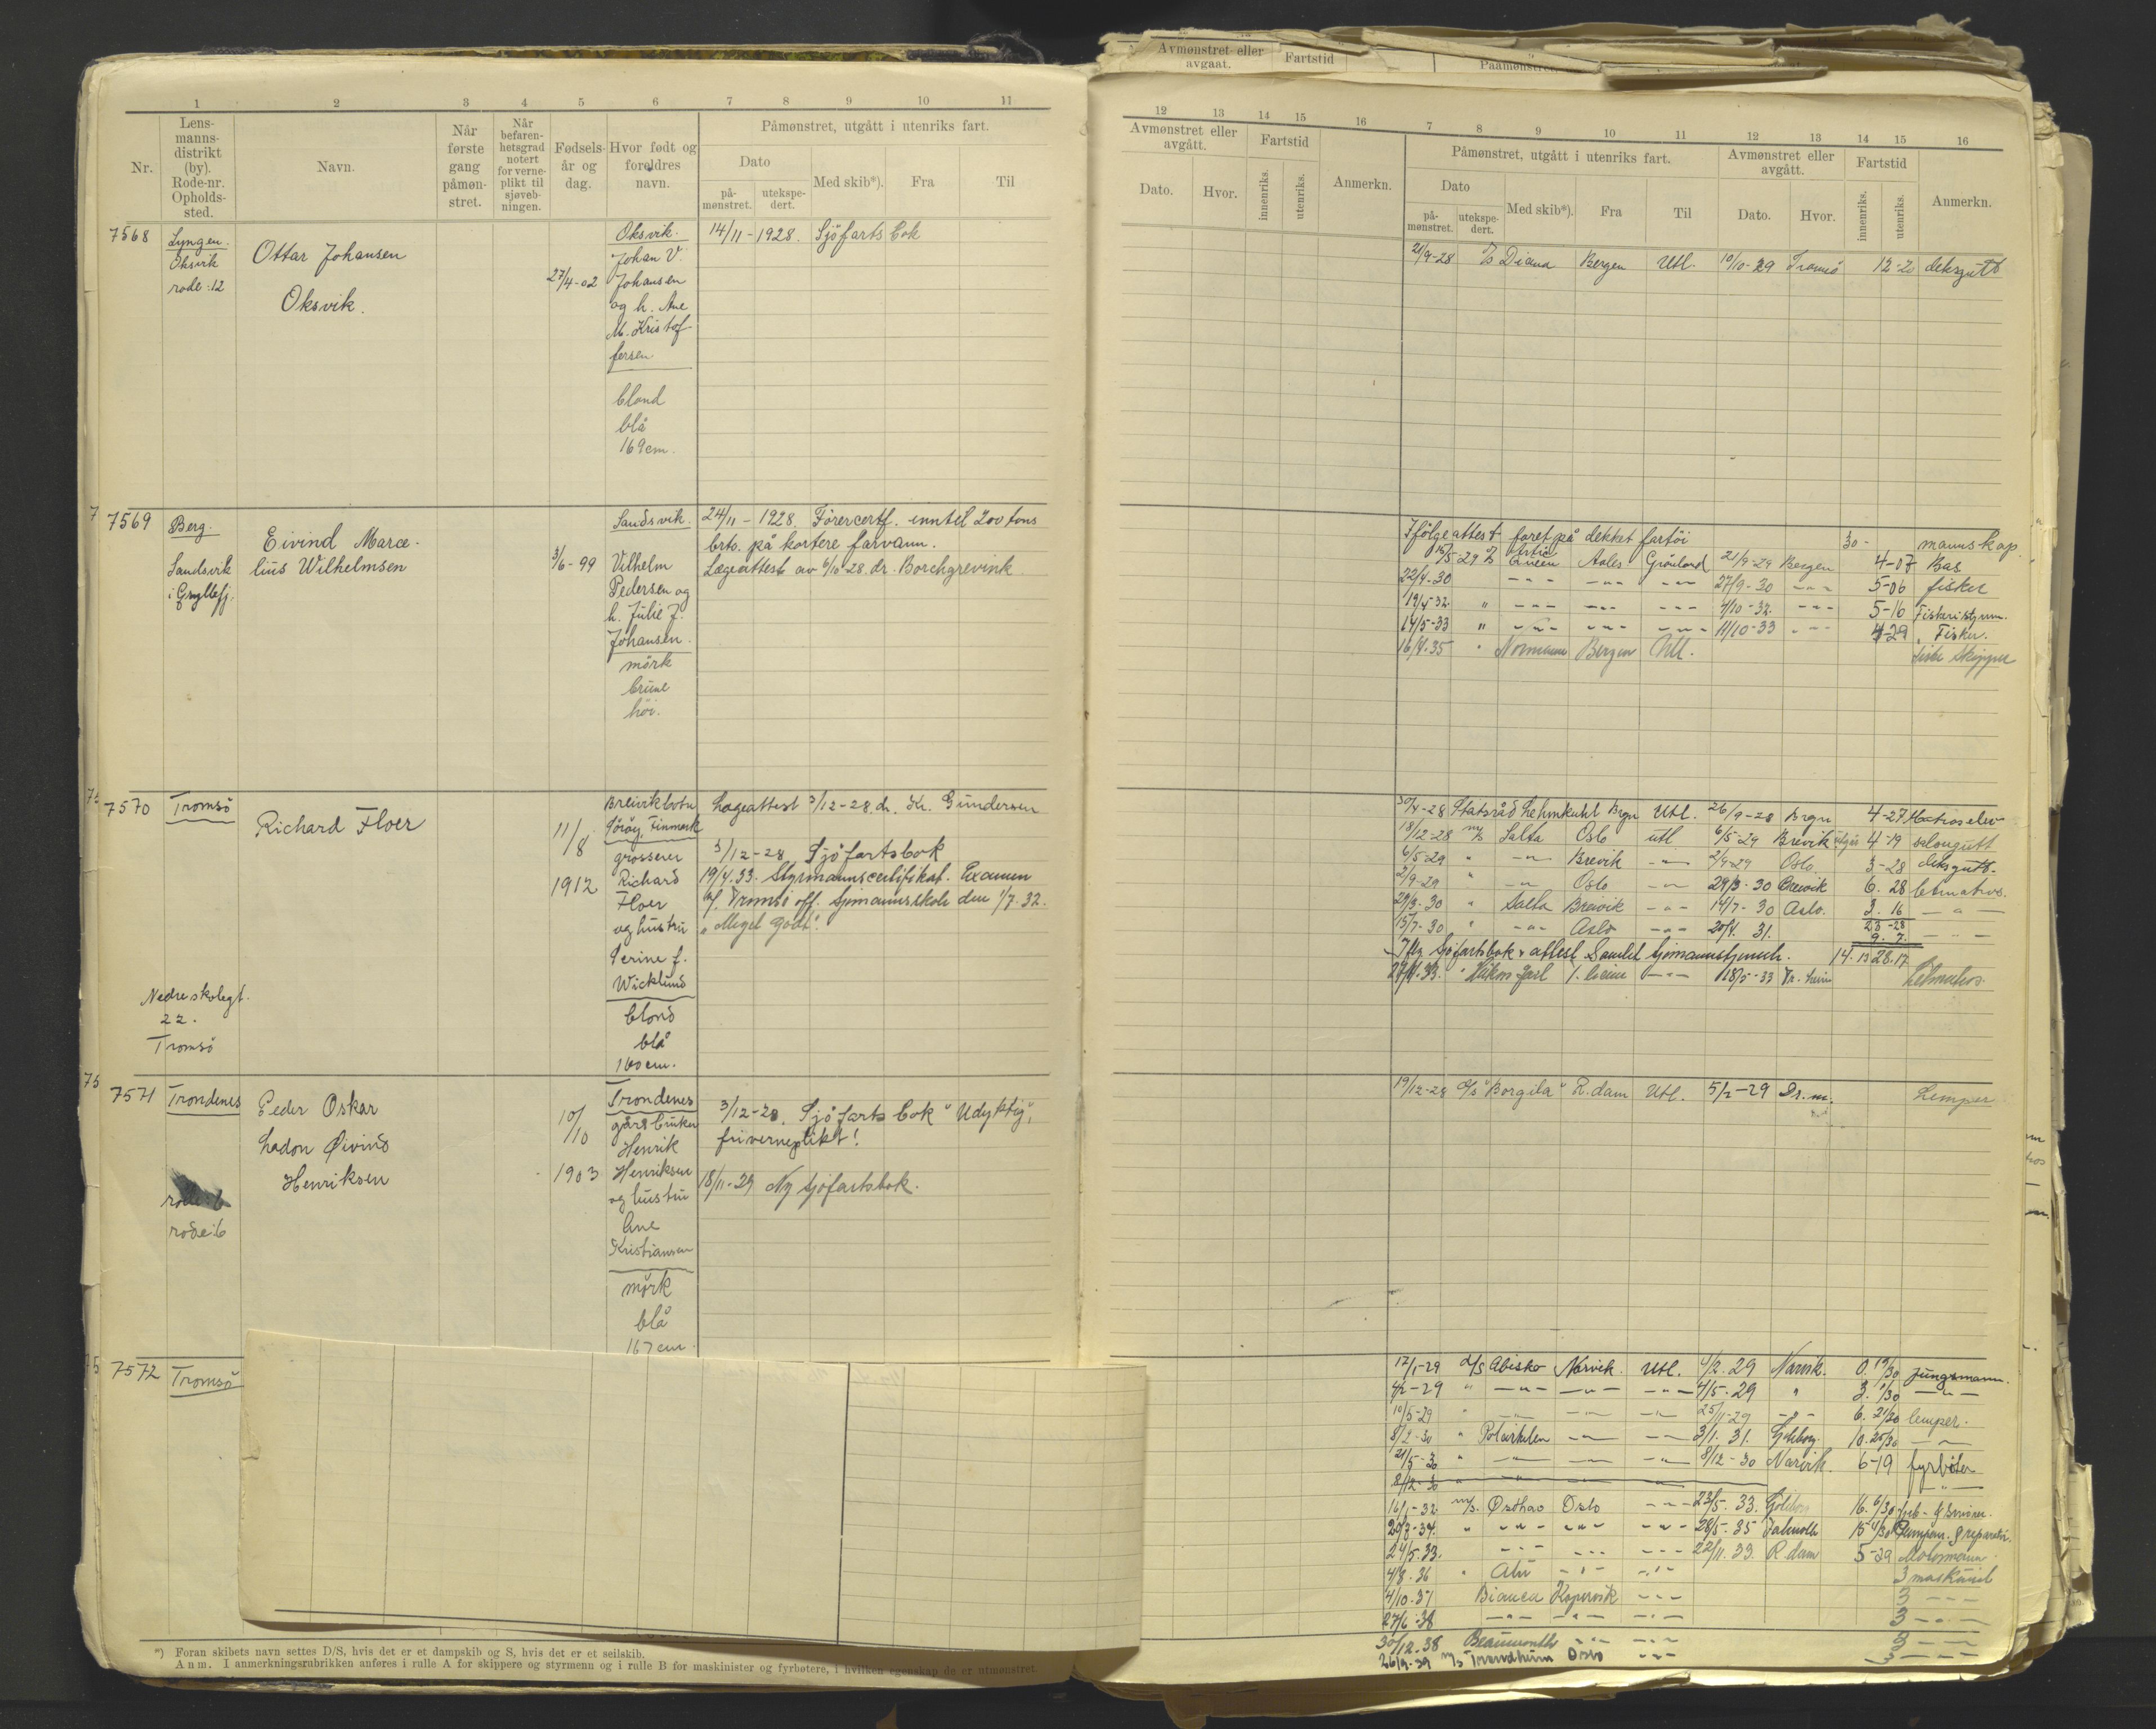 1 2 3 4 5 6 7 8 9 10 11
Nr.
Lens-
manns-
distrikt
(by).
Rode-nr.
Opholds-
sted.
Navn.
Når
første
gang
påmøn-
stret.
Når
befaren-
hetsgrad
notert
for verne-
plikt til
sjøveb-
ningen.
Fødsels-
år og
dag.
Hvor født og
foreldres
navn.
Påmønstret, utgått i utenriks fart.
Dato
på-
mønstret.
utekspe-
dert.
Med skib*).
Fra
Til
7568
Lyngen.
Oksvik
rode: 12
Ottar Johansen
Oksvik.
27/4-02
Oksvik.
Johan V.
Johansen
og h. Ane
M. Kristof-
fersen
blond
blå
169 cm.
14/11-1928. Sjöfartsbok
7569
Berg.
Sandsvik
i Gryllefj.
Eivind Marce-
lius Wilhelmsen
3/6-99
Sandsvik.
Vilhelm
Pedersen og
h. Julie J.
Johansen.
mörk
brune
höi.
24/11-1928. Förercertf. inntil 200 tons
brto. på kortere farvann.
Lægeattest av 6/10-28. dr. Borchgrevink
7570
Tromsö
Nedre skolegt.
22.
Tromsö
Richard Floer
11/8
1912
Breivikbotn
Söröy, Finmark
grosserer
Richard
Floer
og hustru
Serine f.
Wicklund
blond
blå
160 cm.
Lægeattest 3/12-28. dr. Kr. Gundersen
3/12-28 Sjöfartsbok
19/4.33. Styrmannscertifikat. Examen
v/ Tromsö off. Sjömannsskole den 1/7-32.
"Meget godt".
7571
Trondenes
rode: 6
rode: 6
Peder Oskar
Ladon Øivind
Henriksen
10/10
1903
Trondenes
gårdbruker
Henrik
Henriksen
og hustru
Ane
Kristiansen
mörk
blå
167 cm.
3/12-28. Sjöfartsbok "Udyktig",
fri verneplikt!
18/11-29 Ny sjöfartsbok.
7572
Tromsö
*) Foran skibets navn settes D/S, hvis det er et dampskib og S, hvis det er et seilskib.
Anm. I anmerkningsrubrikken anføres i rulle A for skippere og styrmenn og i rulle B for maskinister og fyrbøtere, i hvilken egenskap de er utmønstret.
Avmønstret eller
avgaat.
Fartstid
Paamønstret,
12 13 14 15 16 7 8 9 10 11 12 13 14 15 16
Avmønstret eller
avgått.
Dato.
Hvor.
Fartstid
innenriks.
utenriks.
Anmerkn.
Påmønstret, utgått i utenriks fart.
Dato
på-
mønstret.
utekspe-
dert.
Med skib*).
Fra
Til
Avmønstret eller
avgått.
Dato.
Hvor.
Fartstid
innenriks.
utenriks.
Anmerkn.
21/9-28 D/S Diana Bergen Utl. 10/10-29 Tromsö 12-20 deksgutt
Ifölge attest faret på dekket fartöi 30- mannskap.
15/5-29 Artic Queen Aales Grönland 21/9-29 Bergen 4-07 Bas
22/4-30 -"- -"- -"- 27/9-30 -"- 5-06 fisker
19/4-32 " -"- -"- -"- 4/10-32 -"- 5-16 Fiskeristyrm.
14/5-33 " -"- -"- -"- 11/10-33 -"- 4-29 Fisker.
16/4.35 " Normanna Bergen Utl. fiske skipper
30/4-28 Statsråd Lehmkuhl Brgn Utl. 26/9-28 Brgn 4-27 Matroselev
18/12-28 m/s Salta Oslo utl. 6/5-29 Brevik 4-19 salongutt
6/5-29 " -"- Brevik -"- 2/9-29 Oslo 3-28 deksgutt.
2/9-29 " -"- Oslo -"- 29/3-30 Brevik 6.28 letmatros.
29/3-30 " Salta Brevik -"- 14/7-30 Oslo. 3.16 -"-
15/7-30 " -"- Oslo -"- 20/4.31. 9.7. -"-
23-28
Iflg. Sjöfartsbok + attest Samlet Sjömannstjeneste. 14.13 28.17
27/4.33. " Håkon Jarl T.heim -"- 18/5-33 Tr.heim Letmatros.
19/12-28 D/S "Borgila" R.dam Utl. 5/2-29 Dr.m. Lemper
17/1-29 D/S Abisko Narvik. Utl. 4/2.29 Narvik. 0.19/30 jungmann.
4/2-29 " -"- -"- -"- 4/5.29 " 3.1/30 -"-
10/5-29 " -"- -"- -"- 25/11-29 -"- 6.21/30 lemper.
8/2-30 " Polarhilen -"- -"- 3/1.31. Göteborg 10.25/30 -"-
21/5-30 " -"- -"- -"- 8/12-30 Narvik. 6-19 fyrböter
8/12-30 " -"- -"- -"-
16/1-32 m/s. Østhav Oslo -"- 23/5.33. Göteborg 16.6/30
20/3-34. " -"- -"- -"- 28/5-35 Falmouth 15 4/30 Pumpem. & reparatör.
24/5.33. -"- -"- -"- 22/11.33. R.dam 5-29 Motormann
4/8-36 " -"- -"- 3 maskinist
4/10-37 Bianca Kopervik -"- 3 -"-
27/6-38 -"- -"- -"- 3 -"-
30/12.38 Beaumonth -"- -"- 3 -"-
26/9-39 m/s Trondheim Oslo -"- 3 -"-